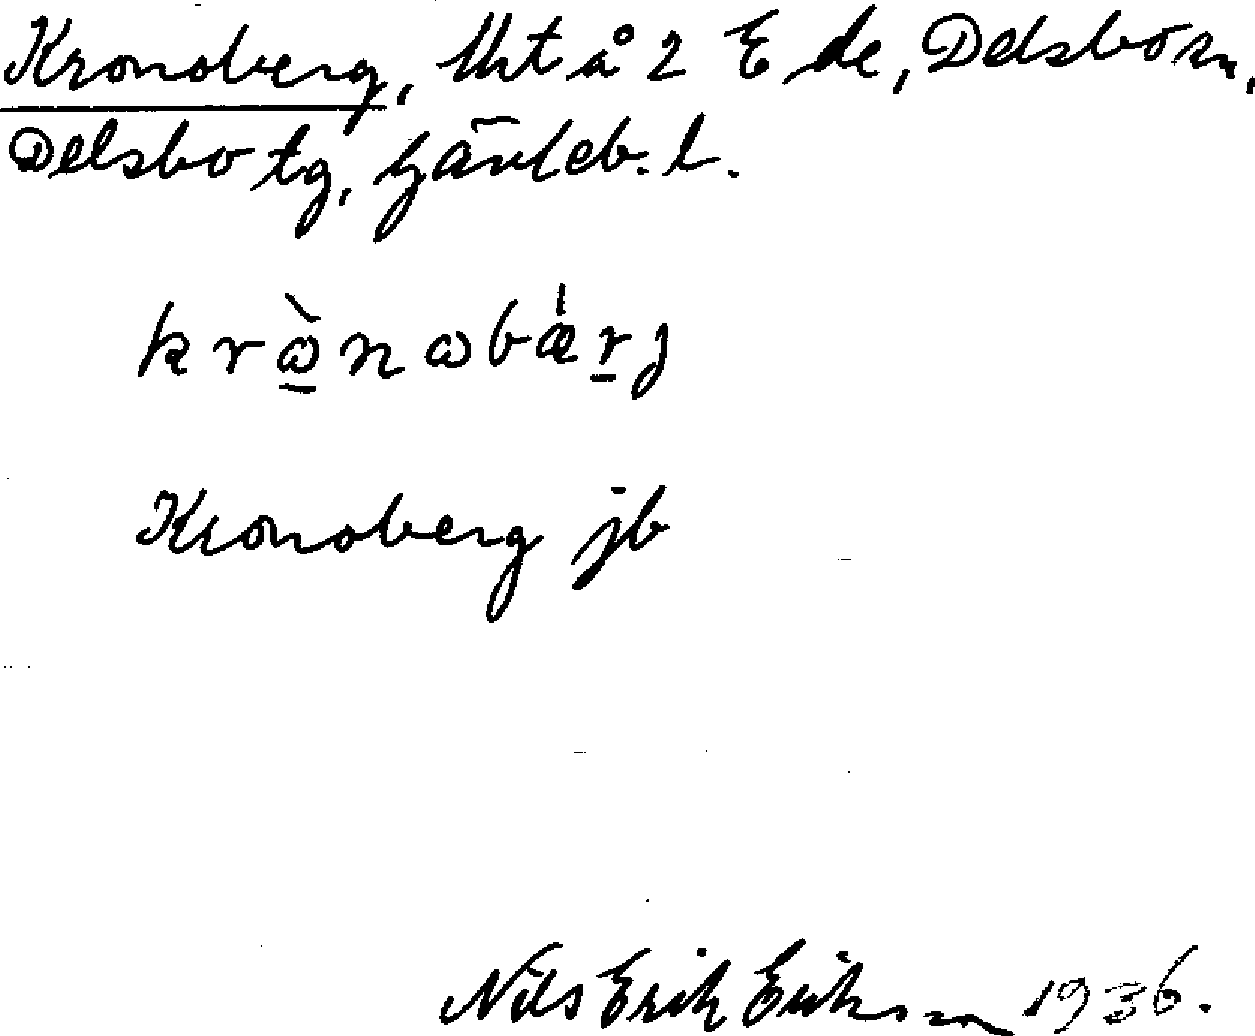 Kronoberg, lht å 2 Ede, Delsbo sn,
Delsbo tg, Gävleb. l.
krònobǽrj
Kronoberg jb
Nils Erik Eriksson 1936.